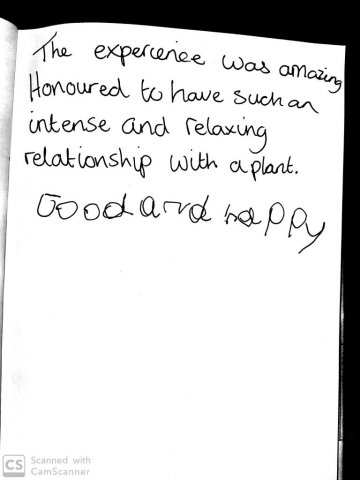 The experience was amazing
Honoured to have such an
intense and relaxing
relationship with a plant.
Good and happy
CS Scanned with
CamScanner